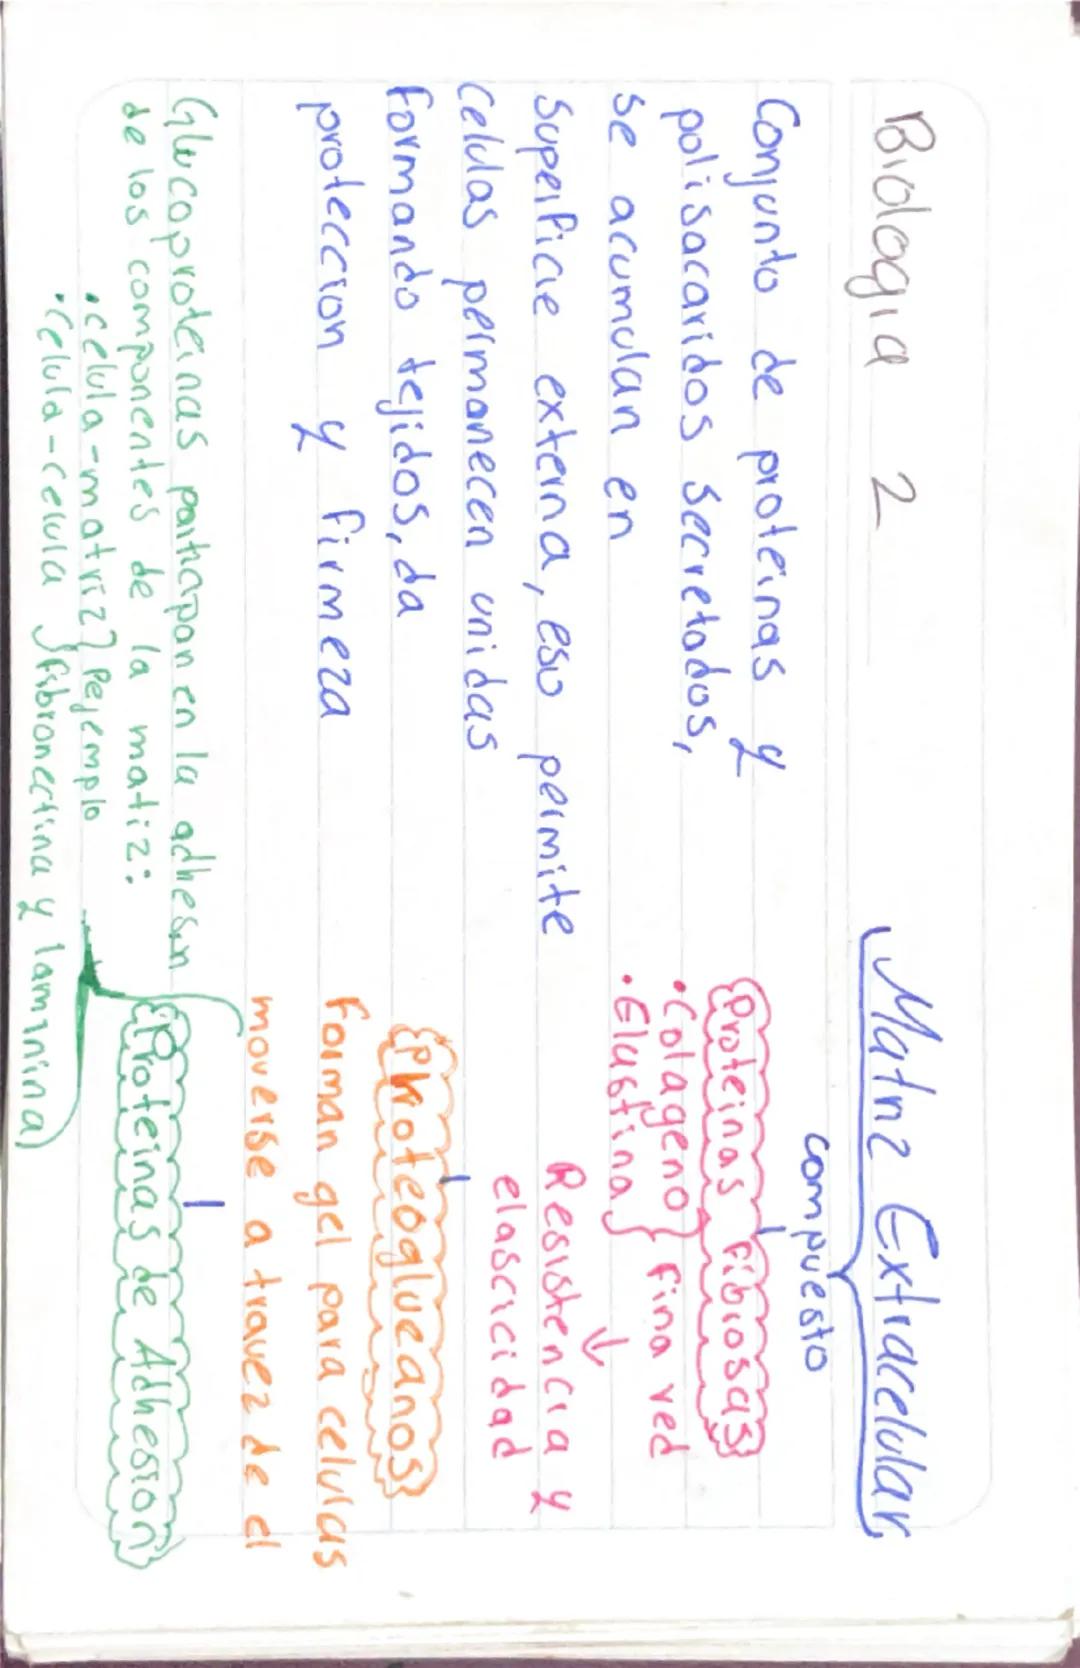 Biologia 2
Matriz Extracelular
compuesto
Conjunto de proteinas y
polisacaridos secretados,
se acumulan en
superficie externa, eso permite
celulas permanecen unidas
formando tejidos, da
proteccion y firmeza
Proteinas Fibrosas
• Colageno
• Elastina
fina red
Resistencia y
elascicidad
Proteoglucanos
forman gel para celulas
moverse a travez de el
Proteinas de Adhesion
Glucoproteinas participan en la adhesin
de los componentes de la matiz:
• celula-matriz
• celula-celula
Pejemplo
fibronectina y laminina)